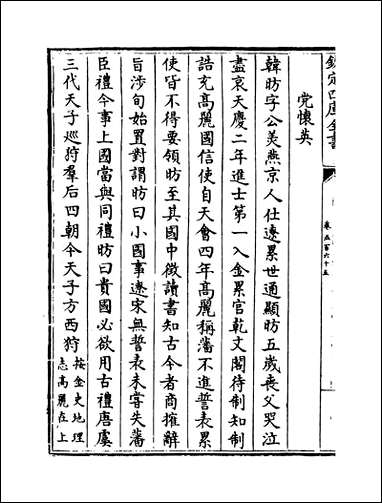 欽定四庫全書
卷五百六十五
党懷英
韓昉字公美燕京人仕遼累世通顯昉五歲喪父哭泣
盡哀天慶二年進士第一入金累官乾文閣待制知制
誥充髙麗國信使自天會四年髙麗稱藩不進誓表累
使皆不得要領昉至其國中徴讀書知古今者商搉辭
旨涉旬始置對謂昉曰小國事遼宋無誓表未嘗失藩
臣禮今事上國當與同禮昉曰貴國必欲用古禮唐虞
三代天子廵狩羣后四朝今天子方西狩
按金史地理
志髙麗在上